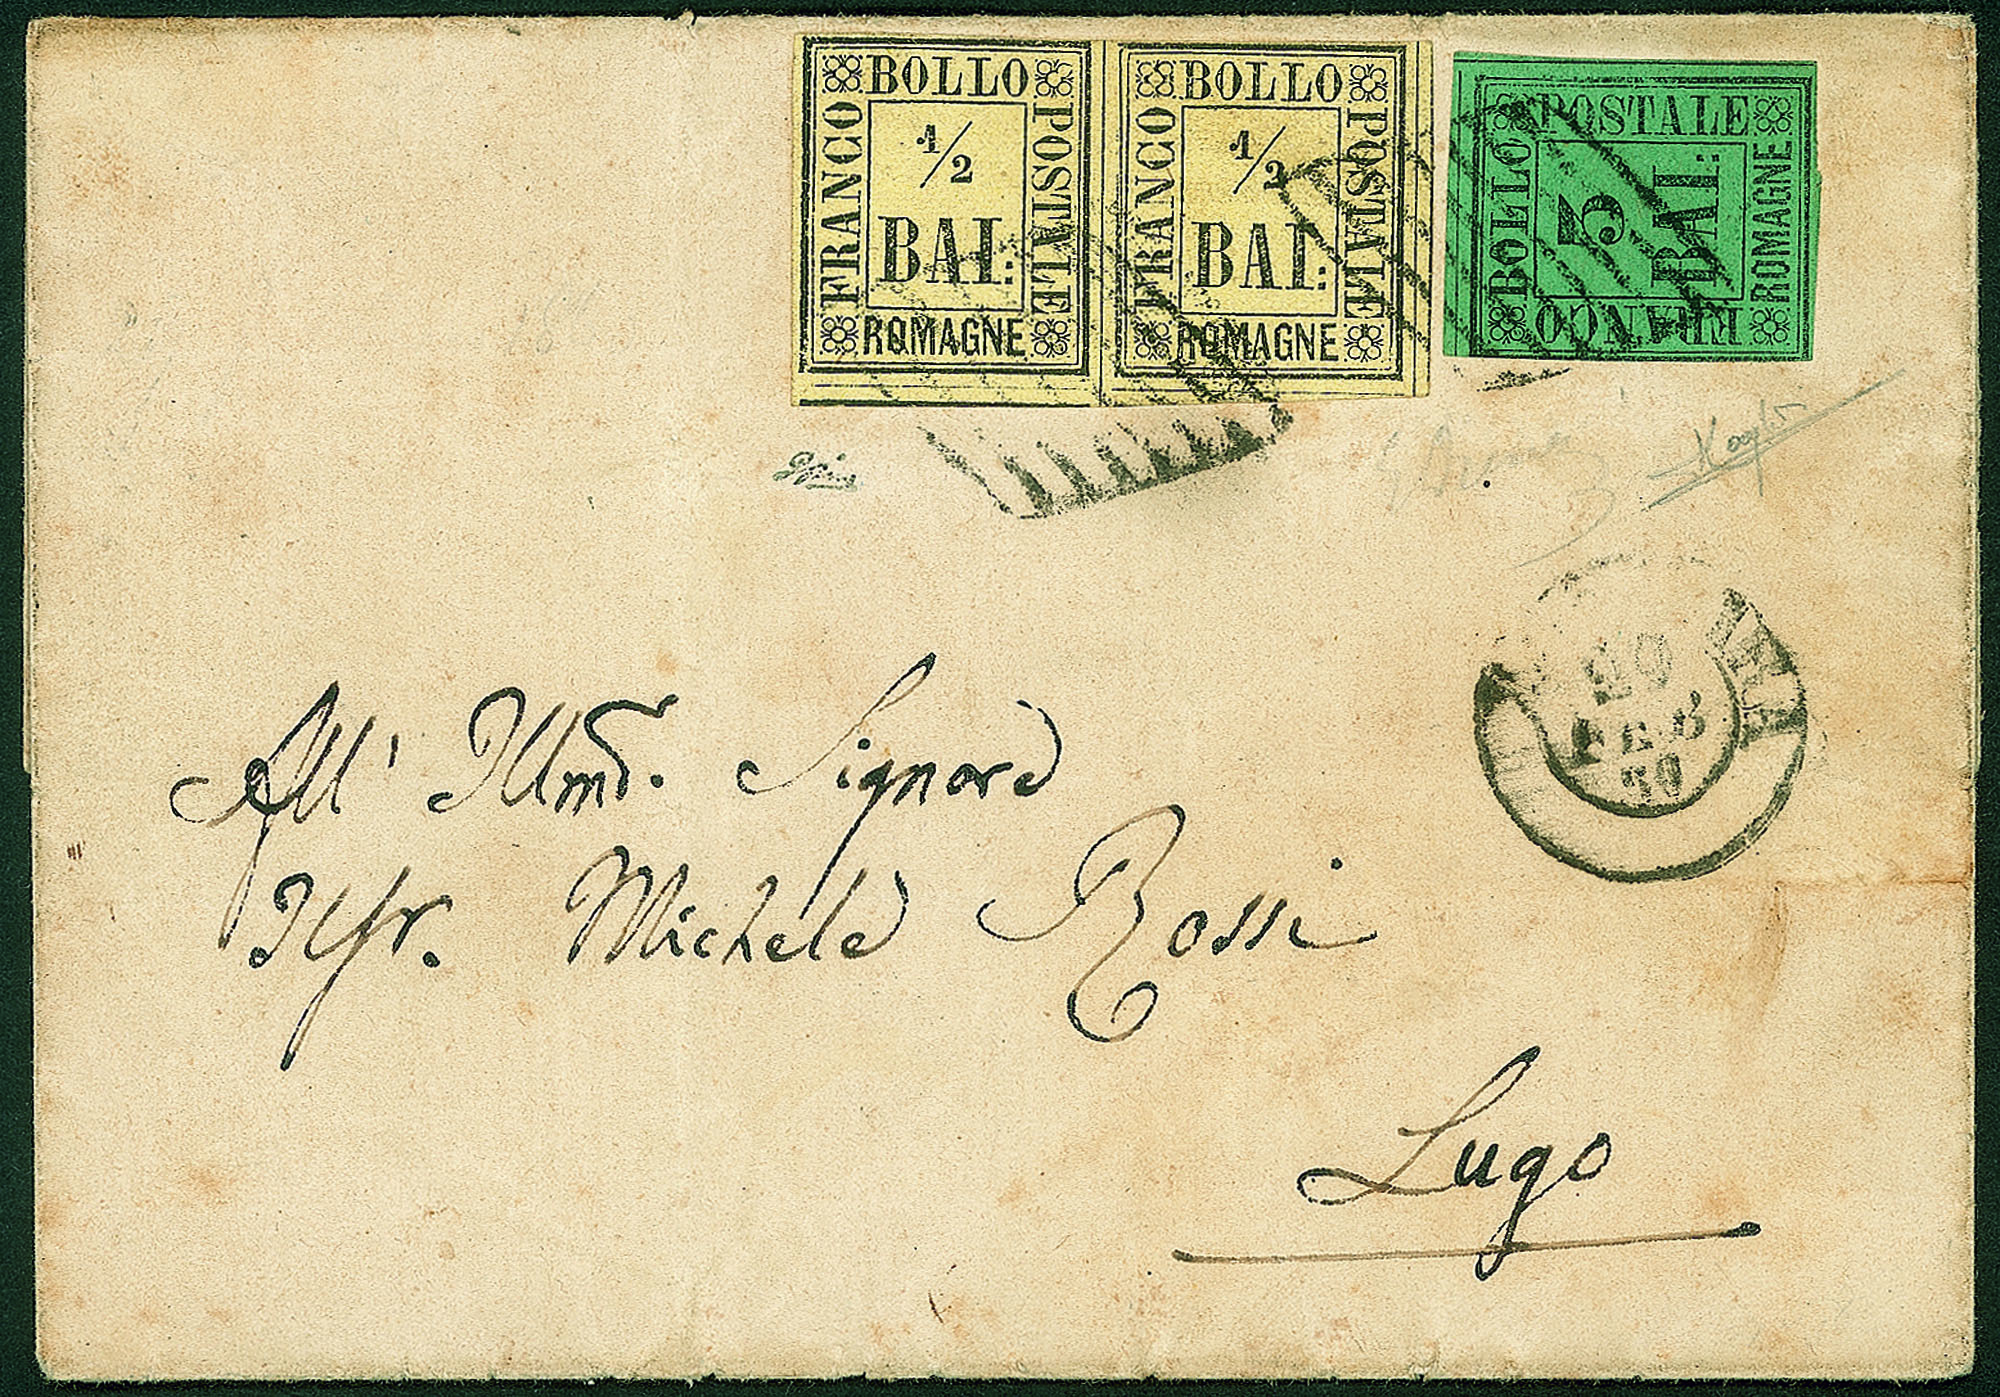 BOLLO
FRANCO
POSTALE
1/2
BAI:
ROMAGNE
BOLLO
FRANCO
POSTALE
1/2
BAI:
ROMAGNE
POSTALE
BOLLO
5
BAI:
ROMAGNE
FRANCO
FEB
All' Illmo. Signore
Michele Rossi
Lugo